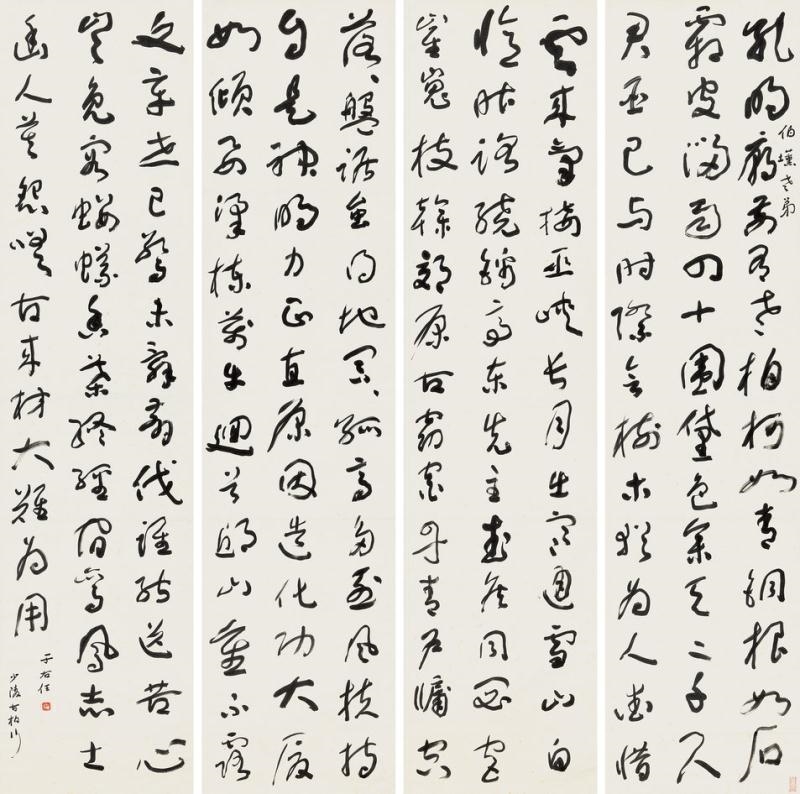 孔明廟前有老柏柯如青銅根如石
伯壎老弟
霜皮溜雨四十圍黛色參天二千尺
君臣已與時際會樹木猶為人愛惜
雲來氣接巫峽長月出寒通雪山白
憶昨路繞錦亭東先主武侯同閟宮
崔嵬枝幹郊原古窈窕丹青戶牖空
落、盤踞雖得地冥、孤高多烈風扶持
自是神明力正直原因造化功大廈
如傾要梁棟萬牛迴首邱山重不露
文章世已驚未辭翦伐誰能送苦心
豈免容螻蟻香葉終經宿鸞鳳志士
幽人莫怨嗟古來材大難為用
于右任
少陵古柏行